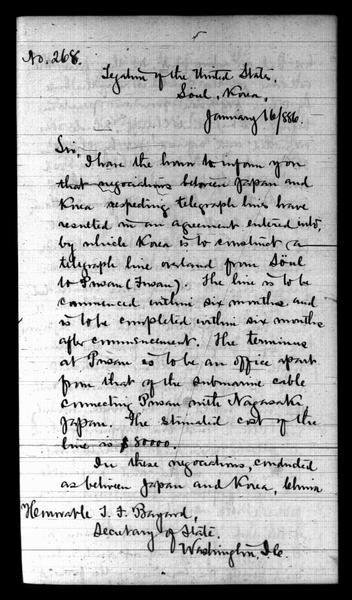 No. 268.
Legation of the United States,
Söul, Korea,
January 16/886.
Sir,
I have the honor to inform you
that negociations between Japan and
Korea respecting telegraph lines have
resulted in an agreement entered into,
by which Korea is to construct a
telegraph line overland from Söul
to Pusan (Fusan). The line is to be
commenced within six months and
is to be completed within six months
after commencement. The terminus
at Pusan is to be an office apart
from that of the submarine cable
connecting Pusan with Nagasaki
Japan. The estimated cost of the
line is $80000.
In these negociations, conducted
as between Japan and Korea,
Honorable T. F. Bayard,
Secretary of State,
Washington, D.C.